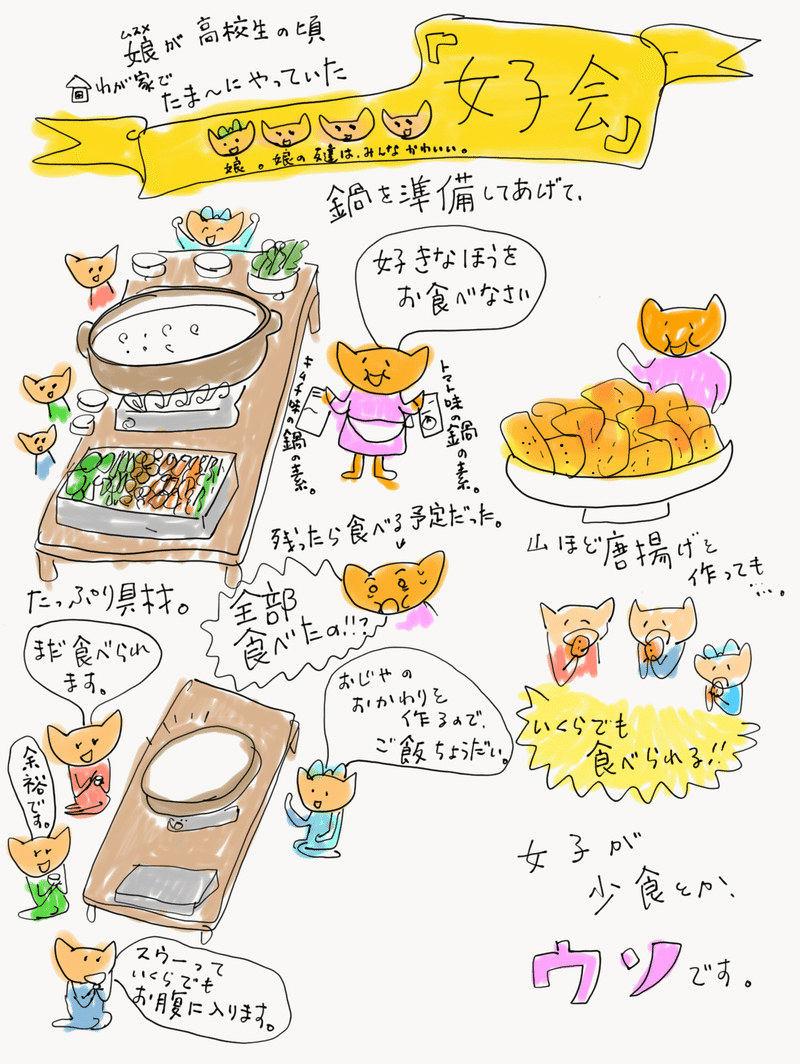 ムスメ
娘が高校生の頃
わが家で
たま〜にやっていた
『女子会』
娘。娘の友達は、みんなかわいい。
鍋を準備してあげて、
好きなほうを
お食べなさい
キムチ味の鍋の素。
トマト味の鍋の素。
たっぷり具材。
残ったら食べる予定だった。
全部
食べたの!!?
山ほど唐揚げを
作っても
…。
まだ食べられ
ます。
余裕です。
おじやの
おかわりを
作るので、
ご飯ちょうだい。
スウーって
いくらでも
お腹に入ります。
いくらでも
食べられる!!
女子が
少食とか、
ウソです。